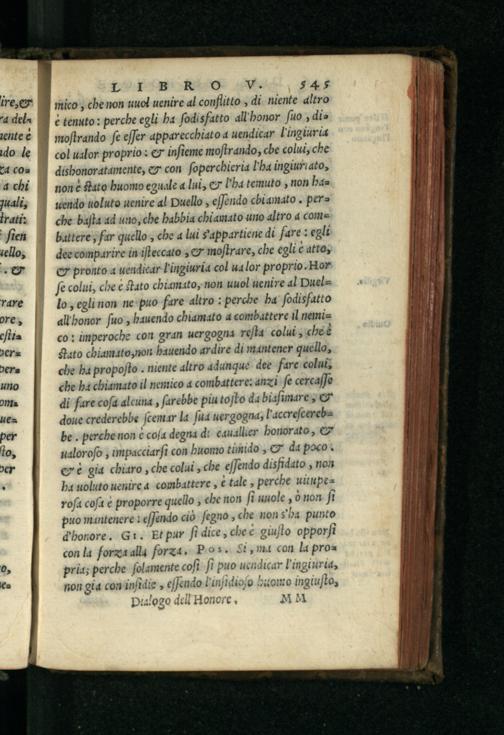 LIBRO V. 545
mico, che non uuol uenire al conflitto, di niente altro
è tenuto: perche egli ha sodisfatto all'honor suo, di=
mostrando se esser apparecchiato a uendicar l'ingiuria
col ualor proprio: & insieme mostrando, che colui, che
dishonoratamente, & con soperchieria l'ha ingiuriato,
non è stato huomo eguale a lui, & l'ha temuto, non ha=
uendo uoluto uenire al Duello, essendo chiamato. per=
che basta ad uno, che habbia chiamato uno altro a com=
battere, far quello, che a lui s'appartiene di fare: egli
dee comparire in isteccato, & mostrare, che egli è atto,
& pronto a uendicar l'ingiuria col ualor proprio. Hor
se colui, che è stato chiamato, non uuol uenire al Duel=
lo, egli non ne puo fare altro: perche ha sodisfatto
all'honor suo, hauendo chiamato a combattere il nemi=
co: imperoche con gran uergogna resta colui, che è
stato chiamato, non hauendo ardire di mantener quello,
che ha proposto. niente altro adunque dee fare colui,
che ha chiamato il nemico a combattere: anzi se cercasse
di fare cosa alcuna, sarebbe piu tosto da biasimare, &
doue crederebbe scemar la sua uergogna, l'accrescereb=
be. perche non è cosa degna di cauallier honorato, &
ualoroso, impacciarsi con huomo timido, & da poco.
& è gia chiaro, che colui, che essendo disfidato, non
ha uoluto uenire a combattere, è tale, perche uitupe=
rosa cosa è proporre quello, che non si uuole, ò non si
puo mantenere: essendo ciò segno, che non s'ha punto
d'honore. GI. Et pur si dice, che è giusto opporsi
con la forza alla forza. POS. Si, ma con la pro=
pria; perche solamente così si puo uendicar l'ingiuria,
non gia con insidie, essendo l'insidioso huomo ingiusto,
Dialogo dell'Honore. MM